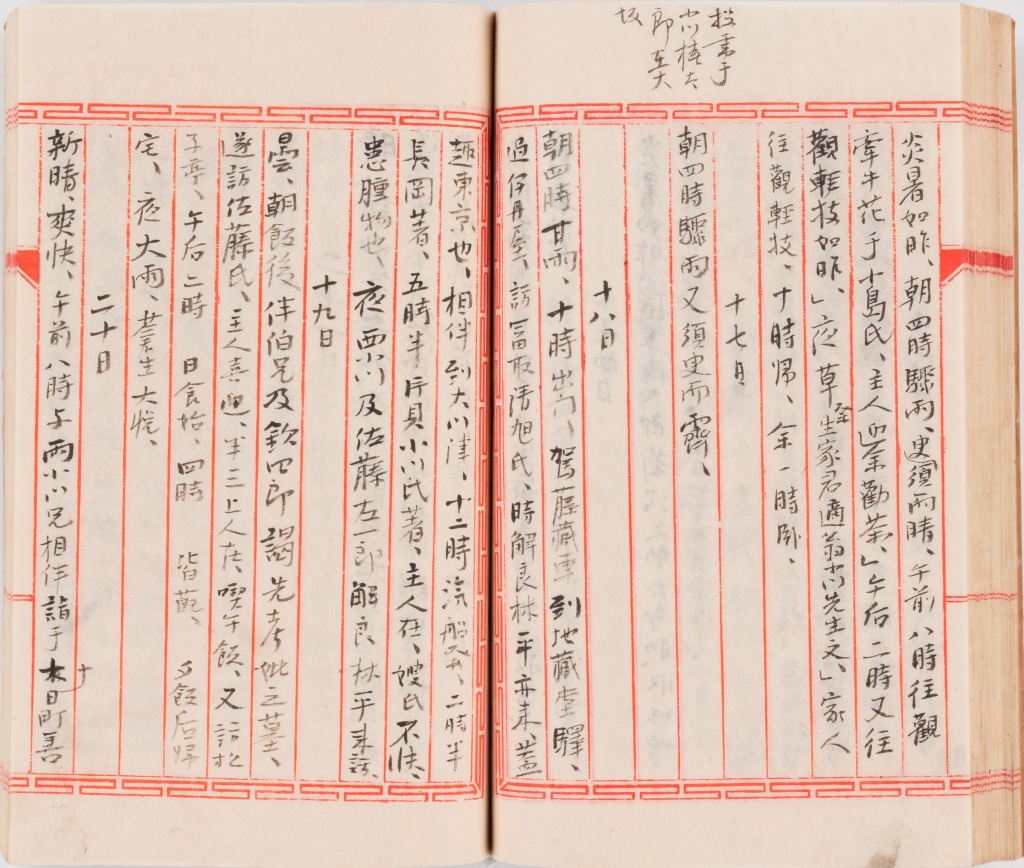 投書于
小川椿太
郎在大
坂
炎暑如昨、朝四時驟雨、臾須雨晴、午前八時往觀
牽牛花于十島氏、主人迎余勸茶、」午后二時又往
觀輕技如昨、」夜草 生家君適翁 先生文、」家人
往觀輕技、十時帰、余一時臥、
十七日
朝四時驟雨又須臾而霽、
十八日
朝四時甘雨、十時出門、駕 藏車到地藏堂驛、
過伊丹屋、訪冨取清旭氏、時解良林平亦来、蓋
趣東京也、相伴到大川津、十二時汽船發、二時半
長岡著、五時半片貝小川氏著、主人在、嫂氏不快、
患腫物也、夜西小川及佐藤左一郎解良林平来訪、
十九日
曇、朝飯後伴伯兄及欽四郎謁先考妣之墓、
遂訪佐藤氏、主人喜迎、半三上人在、喫午飯、又訪松
子亭、午后二時 日食始、四時 皆 、夕飯后帰
宅、夜大雨、 生大悅、
二十日
新晴、爽快、午前八時与兩小川兄相伴詣于十日町善